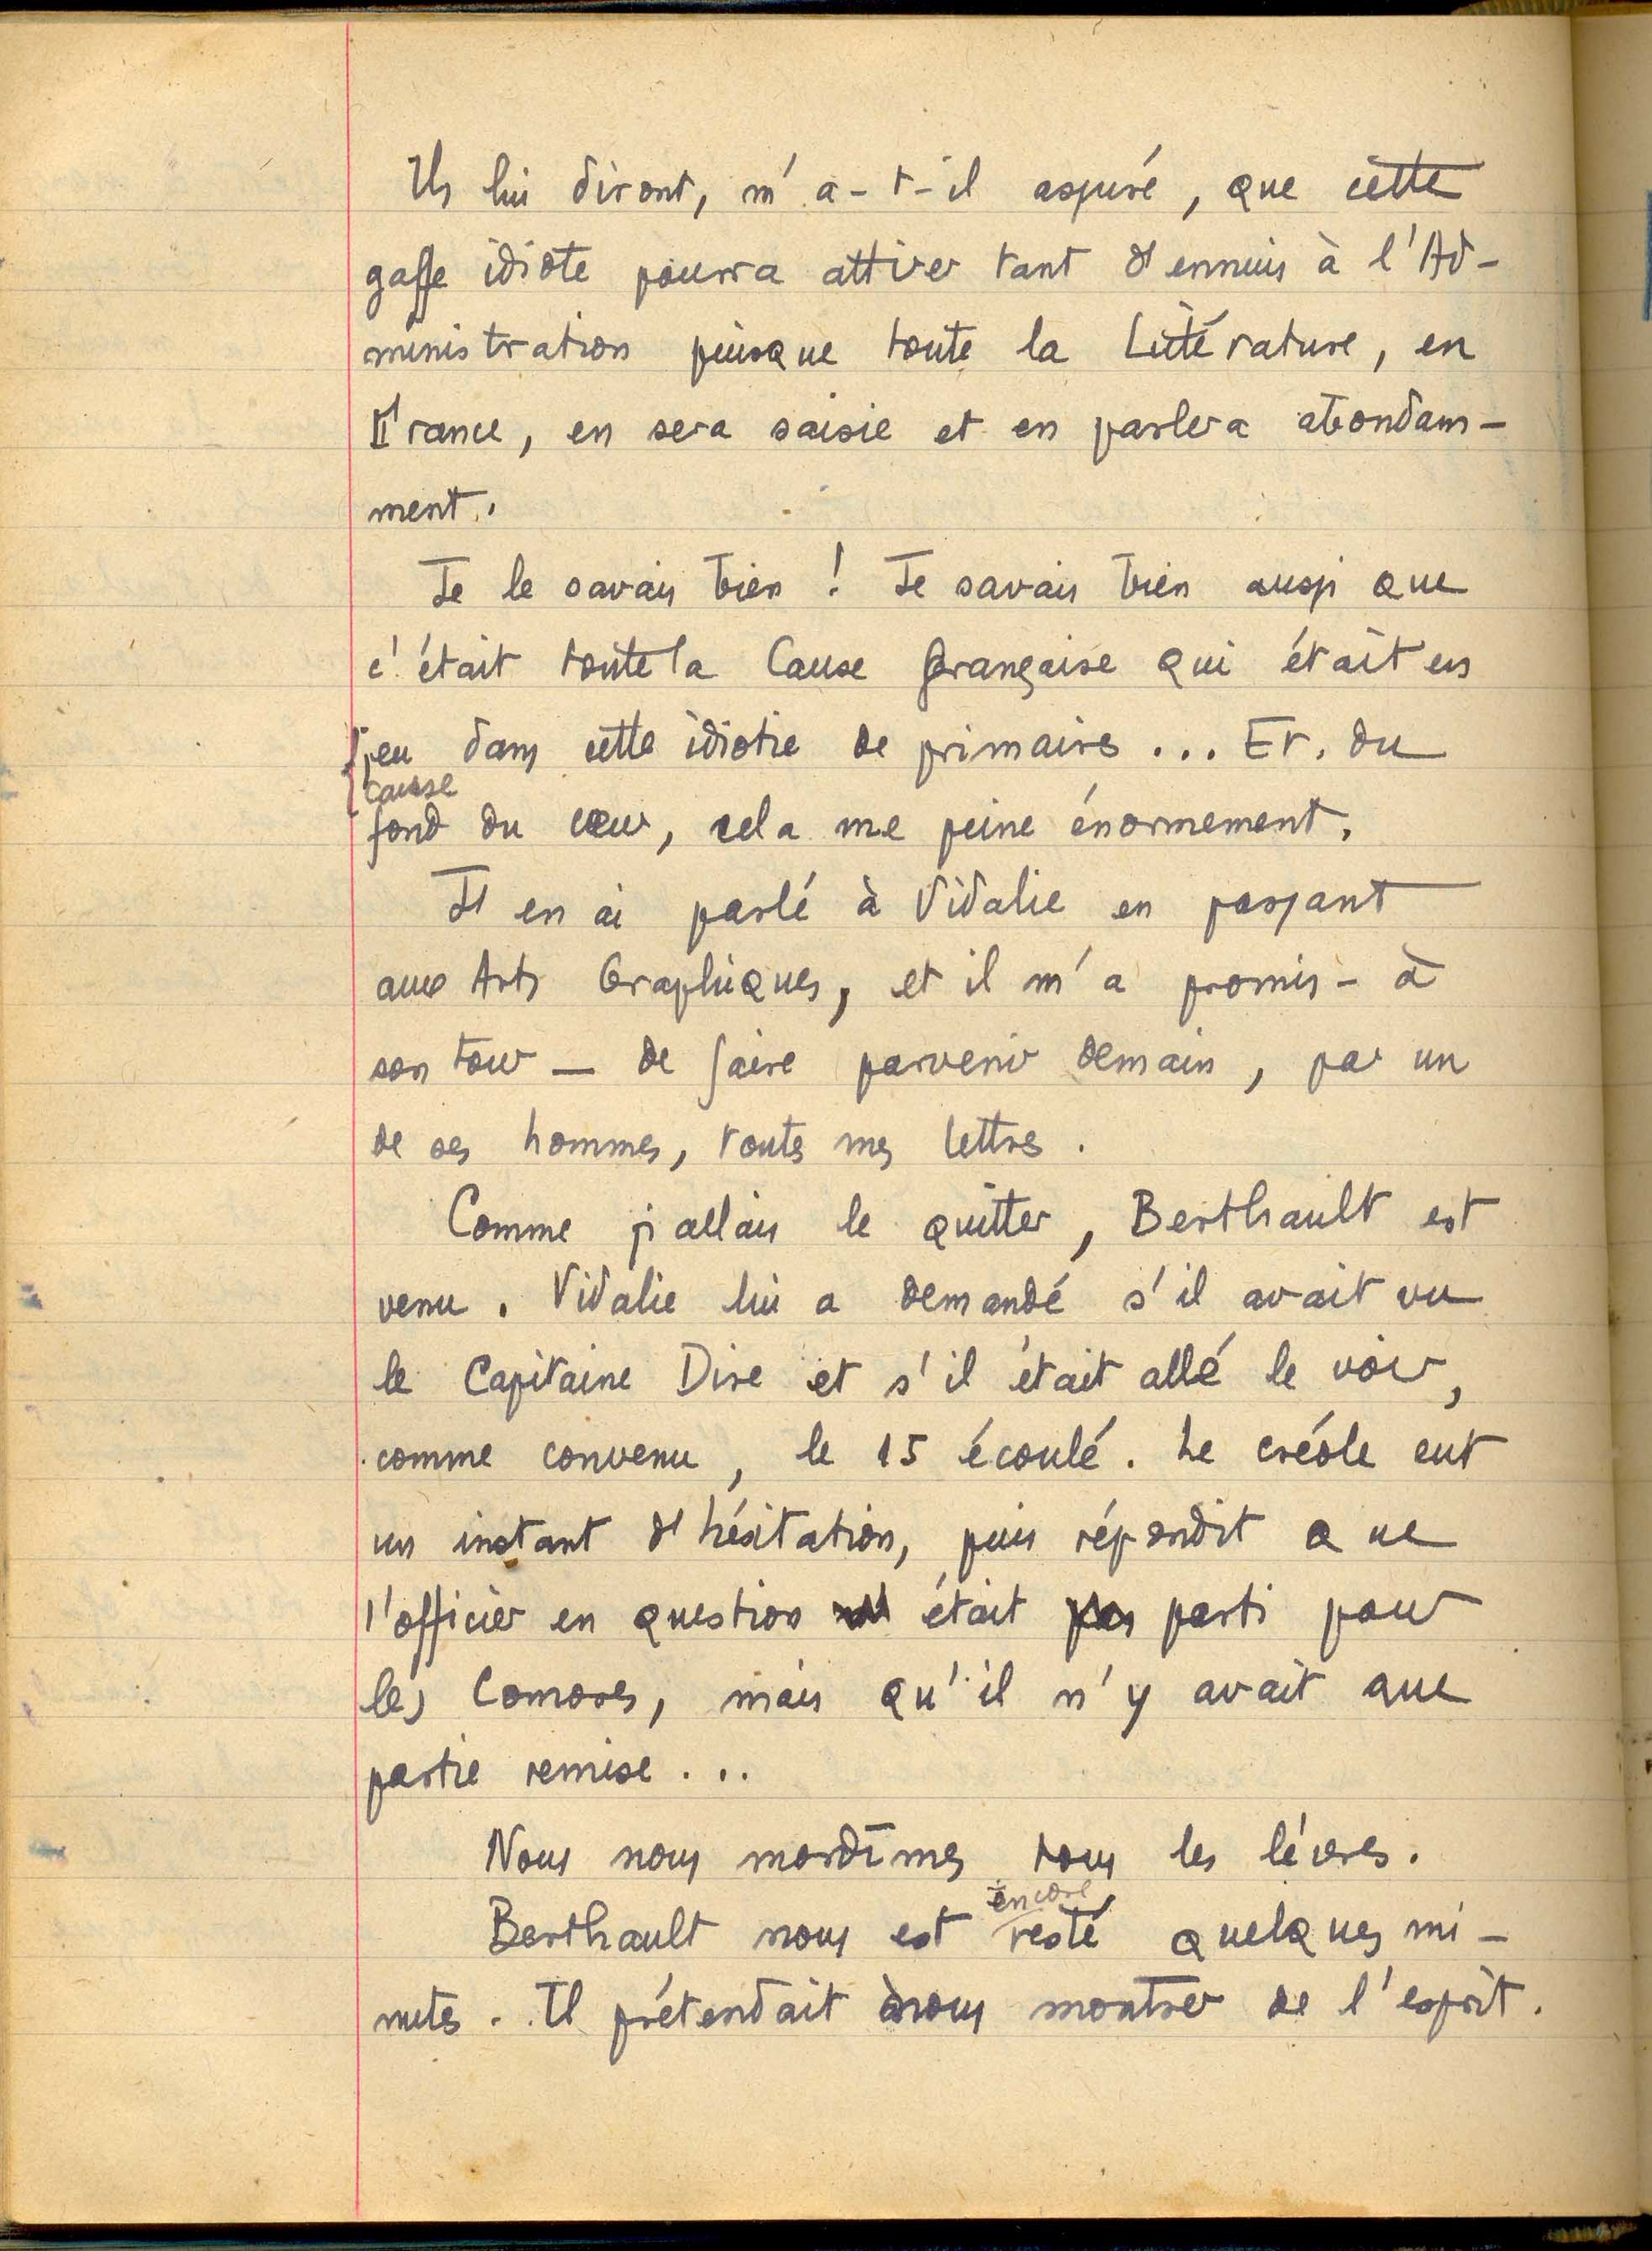 Ils lui diront, m'a-t-il assuré, que cette
gaffe idiote pourra attirer tant d'ennuis à l'Ad-
ministration puisque toute la Littérature, en
France, en sera saisie et en parlera abondam-
ment.
Je le savais bien ! Je savais bien aussi que
c'était toute la Cause française qui était en
jeu dans cette idiotie de primaire... Et, du
cause
fond du cœur, cela me peine énormement.
J'en ai parlé à Vidalie en passant
aux Arts Graphiques, et il m'a promis - à
son tour — de faire parvenir demain, par un
de ses hommes, toutes mes lettres.
Comme j'allais le quitter, Berthault est
venu. Vidalie lui a demandé s'il avait vu
le Capitaine Dire et s'il était allé le voir,
comme convenu, le 15 écoulé. Le créole eut
un instant d'hésitation, puis répondit que
l'officier en question était parti pour
les Comores, mais qu'il n'y avait que
partie remise...
Nous nous mordîmes tous les lèvres.
encore
Berthault nous est resté quelques mi-
nutes. Il prétendait nous montrer de l'esprit.